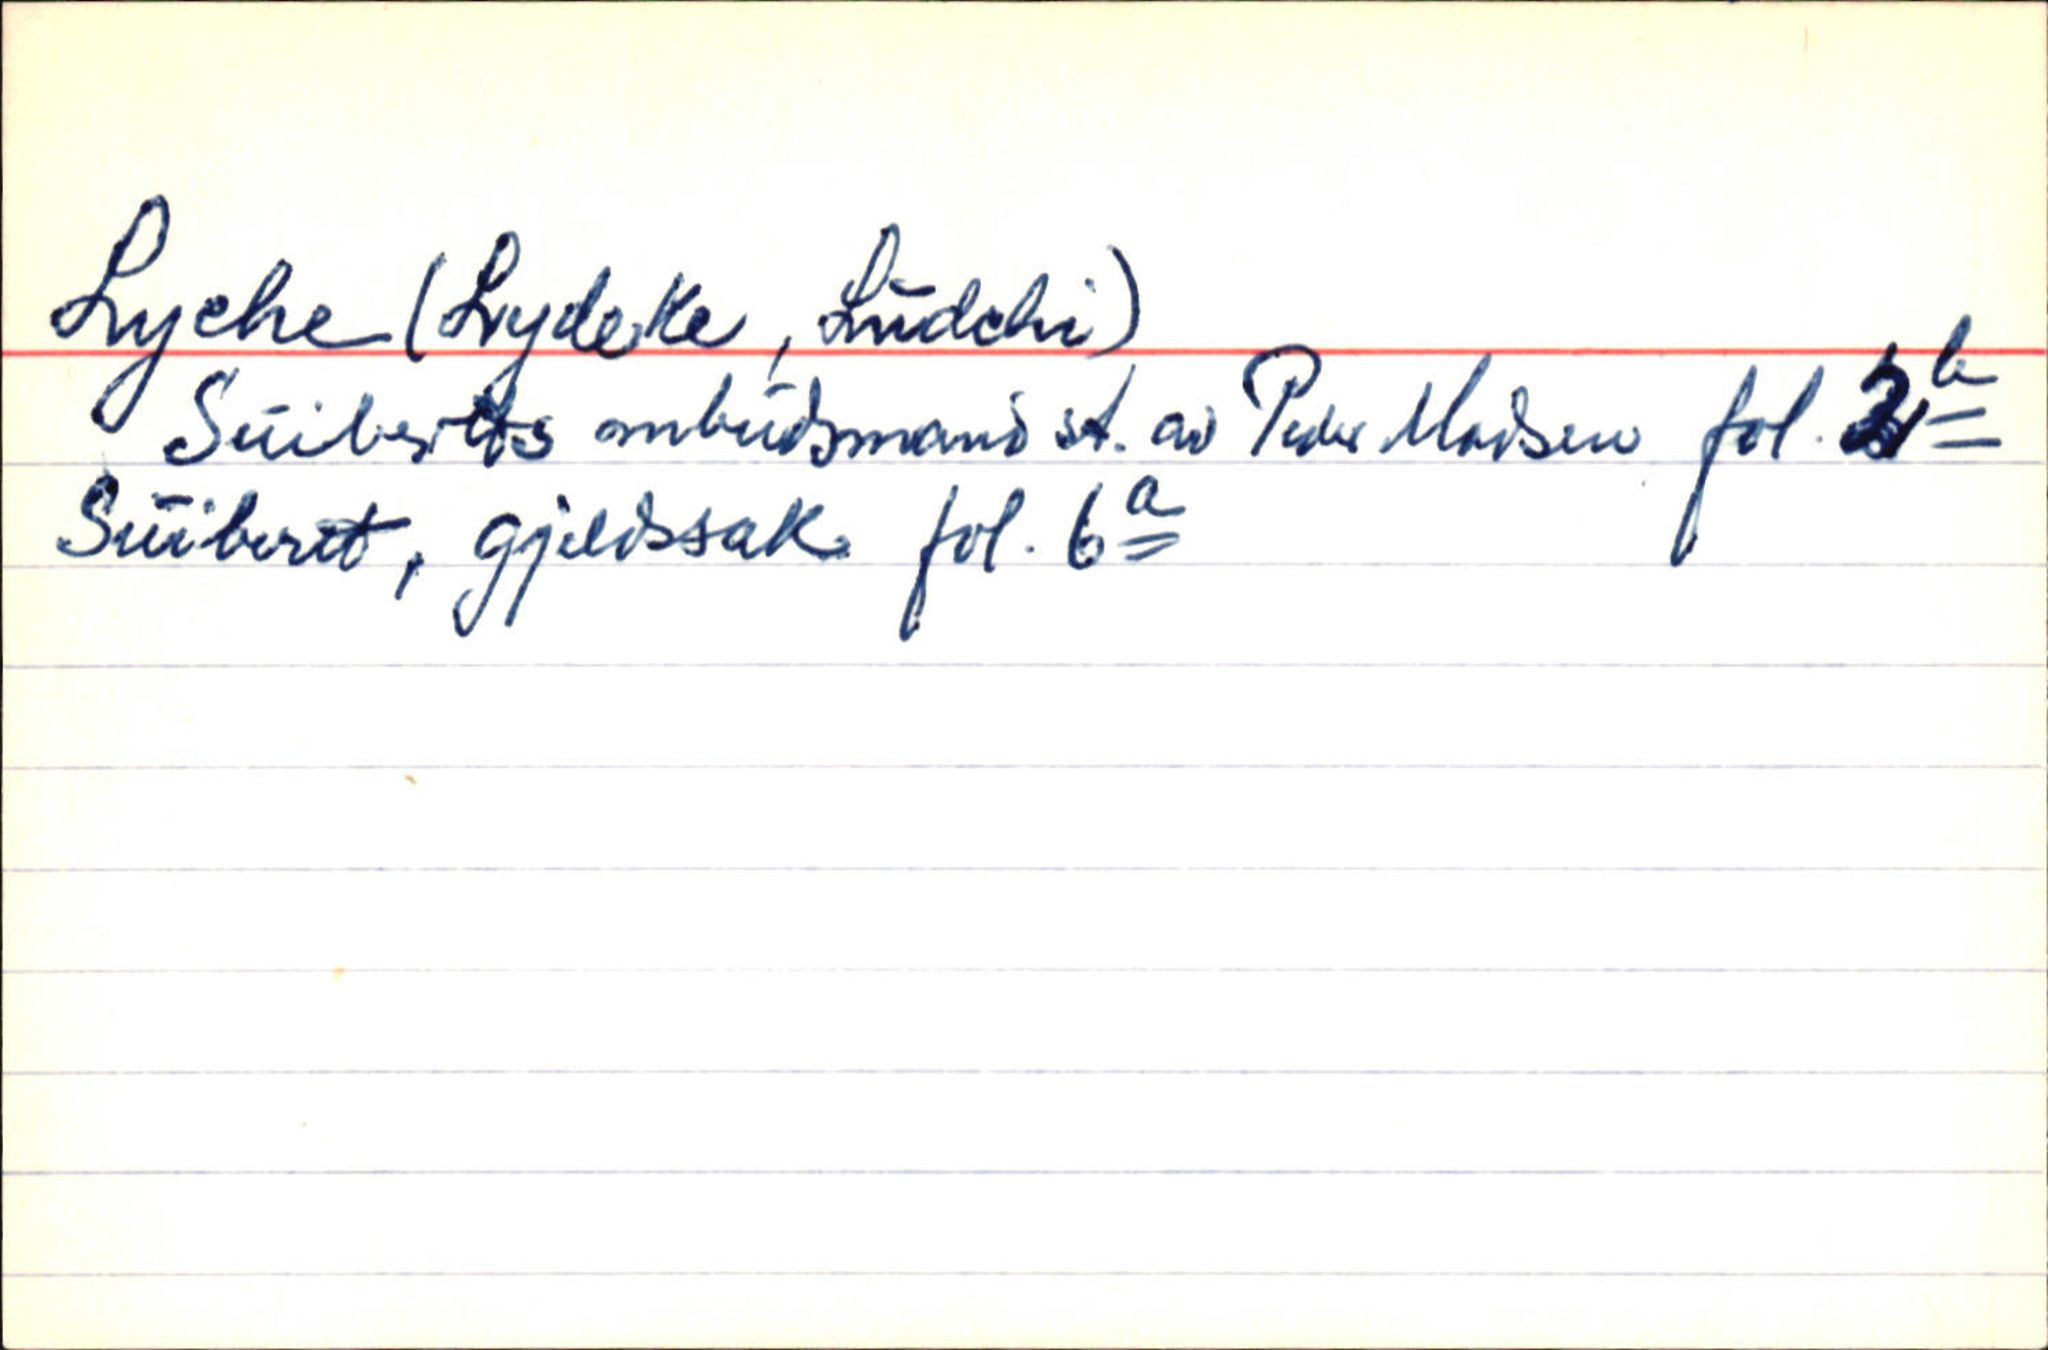 Lyche (Lydeke, Ludchi)
Suiberts ombudsmand st. av Peder Madsen fol. 2b
Suibert, gjeldssak fol. 6a